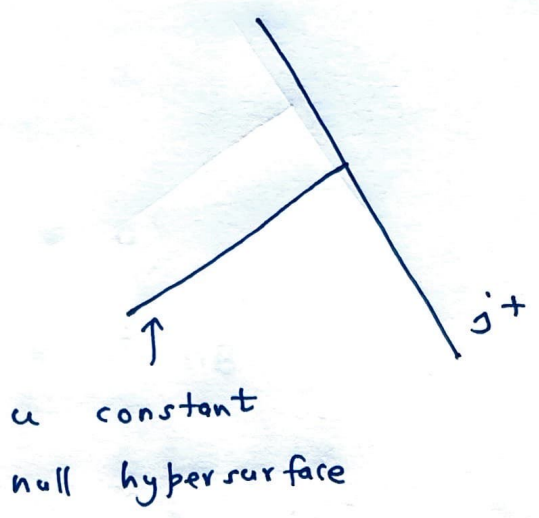 j+
u constant
null hypersurface